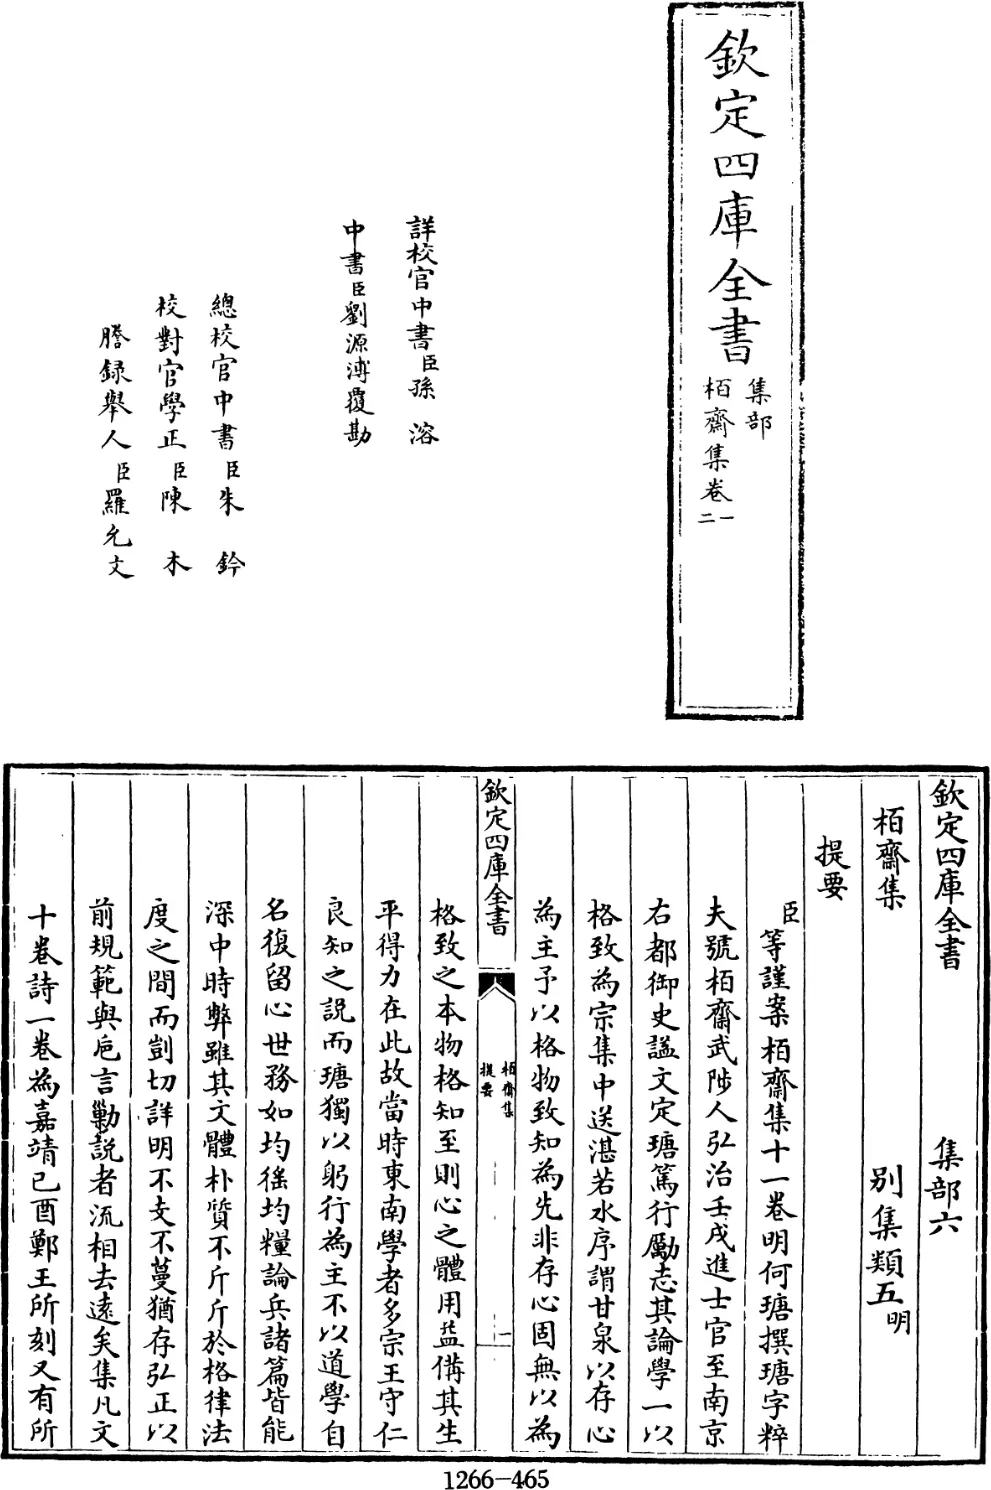 欽定四庫全書
集部
栢齋集卷一
二
詳校官中書臣孫溶
中書臣劉源溥覆勘
總校官中書臣朱鈐
校對官學正臣陳木
謄録舉人臣羅允文
欽定四庫全書 集部六
栢齋集 别集類五明
提要
臣等謹案栢齋集十一卷明何瑭撰瑭字粹
夫號栢齋武陟人弘治壬戌進士官至南京
右都御史謚文定瑭篤行勵志其論學一以
格致為宗集中送湛若水序謂甘泉以存心
為主予以格物致知為先非存心固無以為
欽定四庫全書
栢齋集
提要
一
格致之本物格知至則心之體用益偹其生
平得力在此故當時東南學者多宗王守仁
良知之説而瑭獨以躬行為主不以道學自
名復留心世務如均徭均糧論兵諸篇皆能
深中時弊雖其文體朴質不斤斤於格律法
度之間而剴切詳明不支不蔓猶存弘正以
前規範與巵言勦説者流相去逺矣集凡文
十卷詩一卷為嘉靖己酉鄭王所刻又有所
1266-465